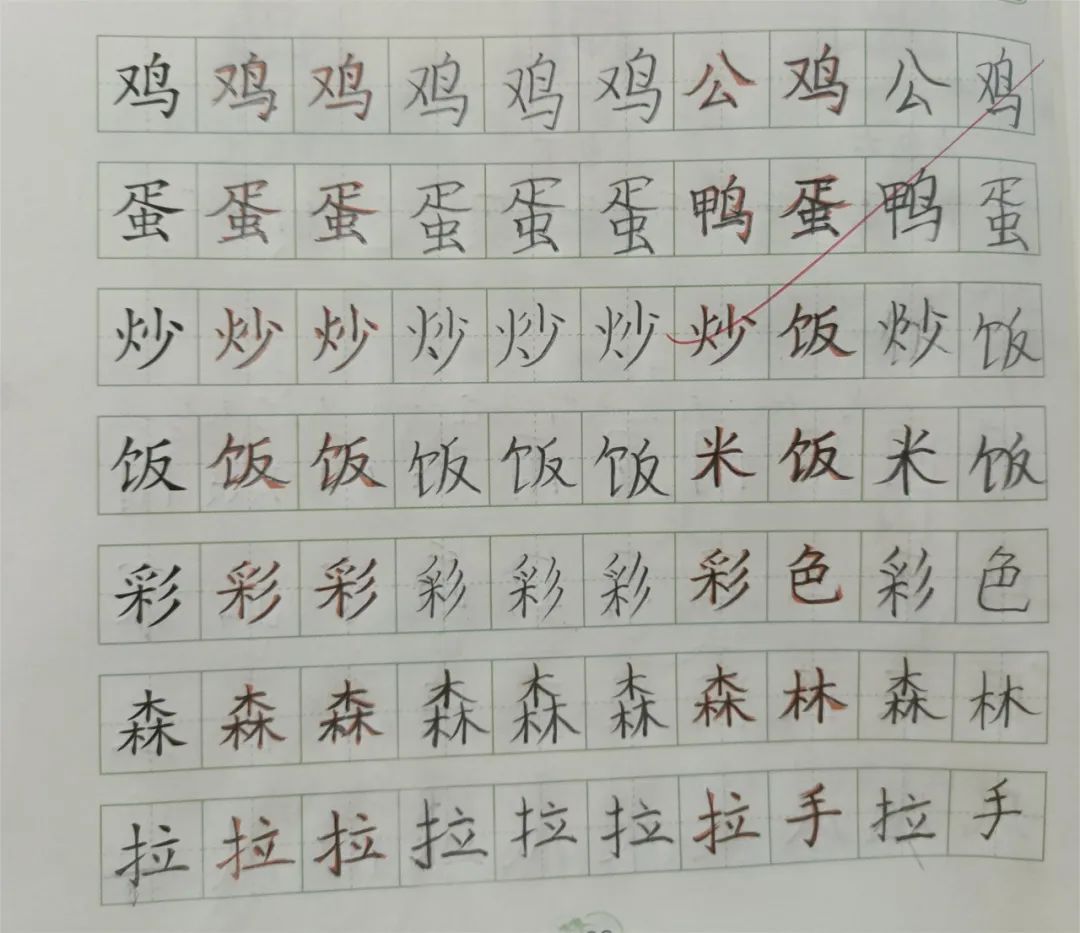 鸡鸡鸡鸡鸡鸡公鸡公鸡
蛋蛋蛋蛋蛋蛋鸭蛋鸭蛋
炒炒炒炒炒炒炒饭炒饭
饭饭饭饭饭饭米饭米饭
彩彩彩彩彩彩彩色彩色
森森森森森森森林森林
拉拉拉拉拉拉拉手拉手